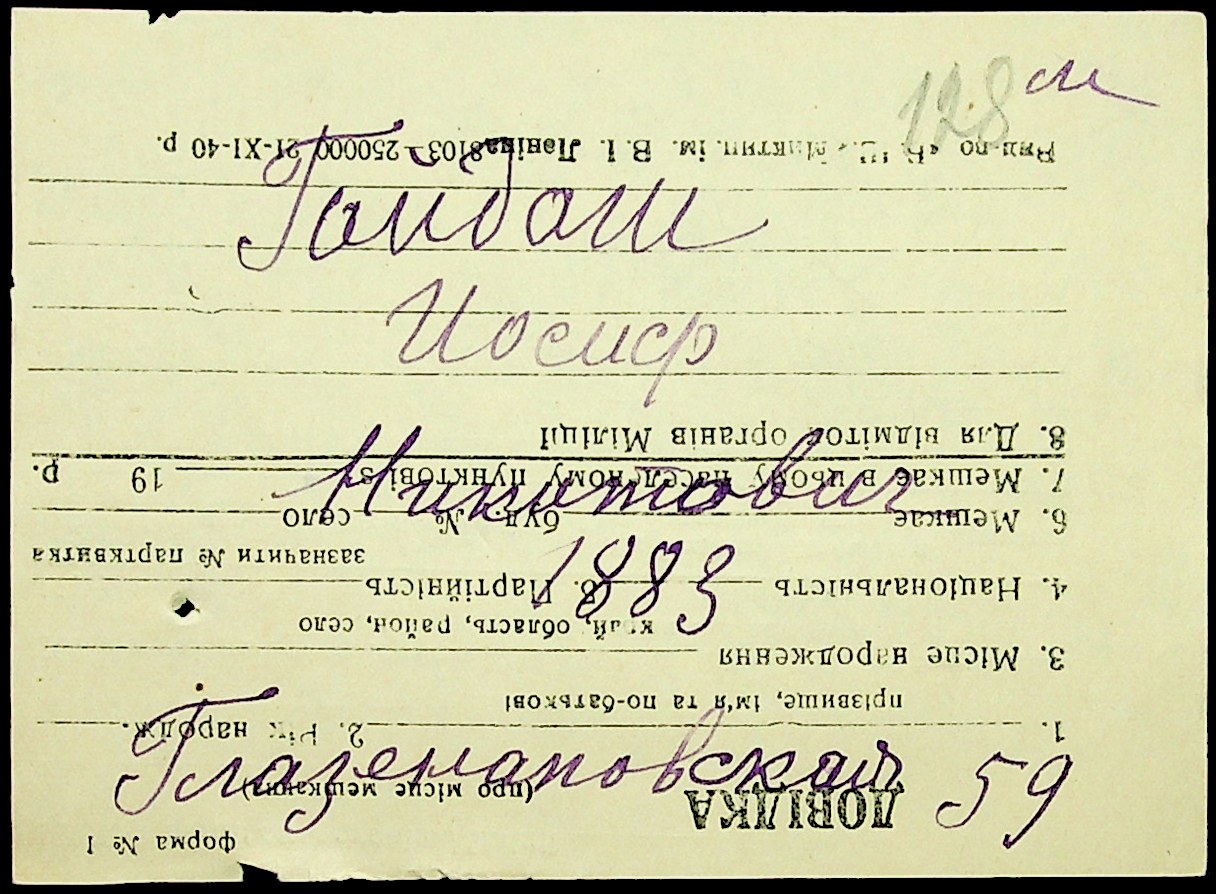 128
Иосиф
1883
Глазенаповская 59
форма № 1
ДОВІДКА
(про місце мешкання)
1. 2. Рік народж.
прізвище, ім'я та по-батькові
3. Місце народження
край, область, район, село
4. Національність 5. Партійність
зазначити № партквитка
6. Мешкає буд. № село
7. Мешкає в цьому населеному пунктові з 19 р.
8. Для відміток органів Міліції
ім. В. І. Леніна 8103—250000 21-XI-40 р.